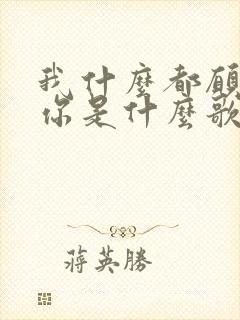 我什麼都願
你是什麼歌
蔣英勝